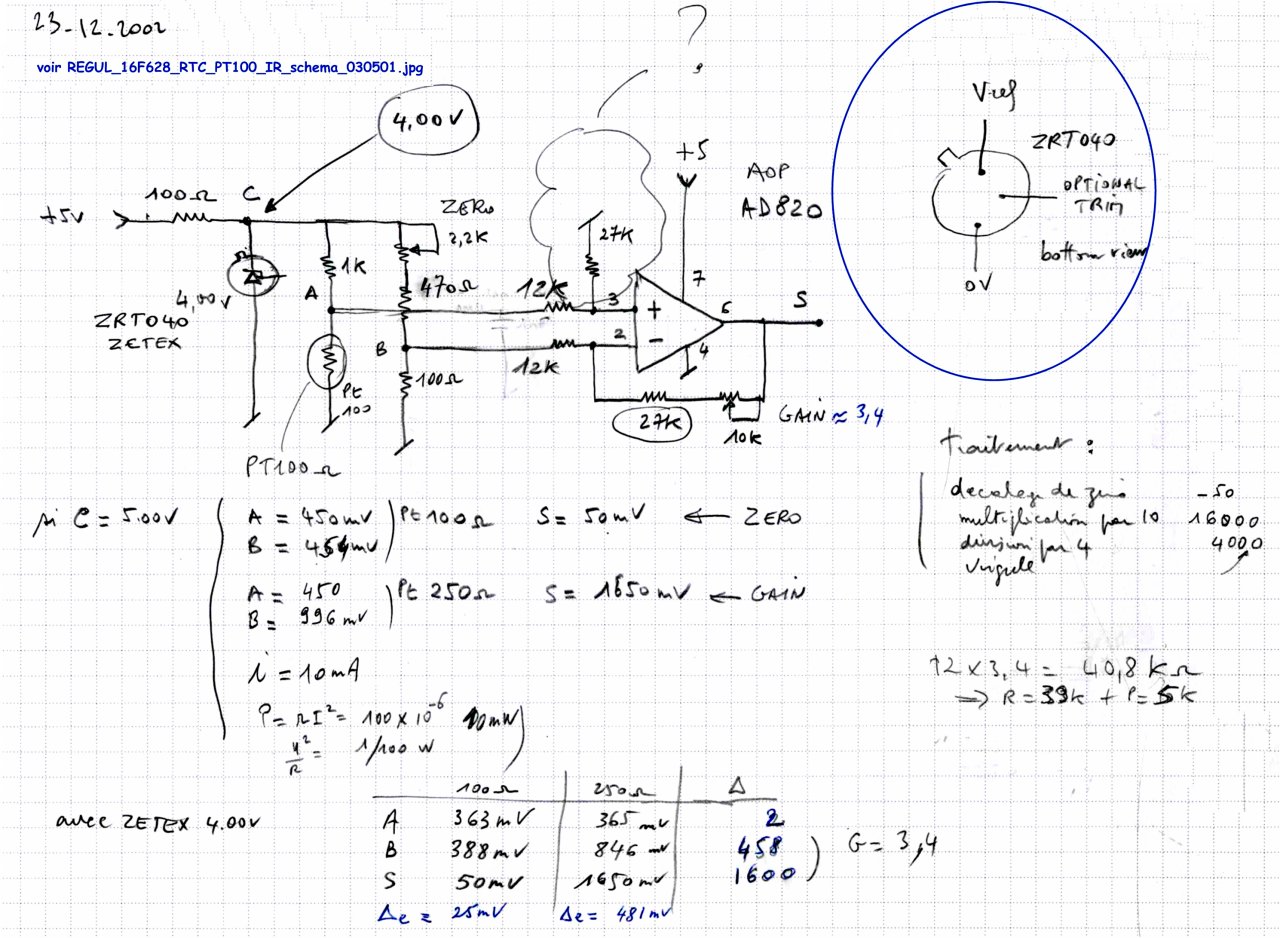 23-12-2002
voir REGUL_16F628_RTC_PT100_IR_schema_030501.jpg
?
4,00V
+5V
100Ω
C
ZERO
2,2K
1K
470Ω
A
B
4,00V
ZRT040
ZETEX
Pt
100
100Ω
PT100Ω
12K
12K
27K
+5
AOP
AD820
3
2
7
6
4
+
-
S
27K
10K
GAIN ≈ 3,4
Vref
ZRT040
OPTIONAL
TRIM
bottom view
0V
traitement :
decalage de zero -50
multiplication par 10 16000
division par 4 4000
virgule
si C = 5.00V
A = 450mV Pt 100Ω S = 50mV ← ZERO
B = 454mV
A = 450 Pt 250Ω S = 1650mV ← GAIN
B = 996mV
i = 10mA
P = RI² = 100 x 10⁻⁶ 10mW
u²/R = 1/100 W
12 x 3,4 = 40,8 KΩ
⇒ R = 39K + P = 5K
avec ZETEX 4.00V
100Ω 250Ω Δ
A 363mV 365mV 2
B 388mV 846mV 458
S 50mV 1650mV 1600
G = 3,4
Δe = 25mV Δe = 481mV